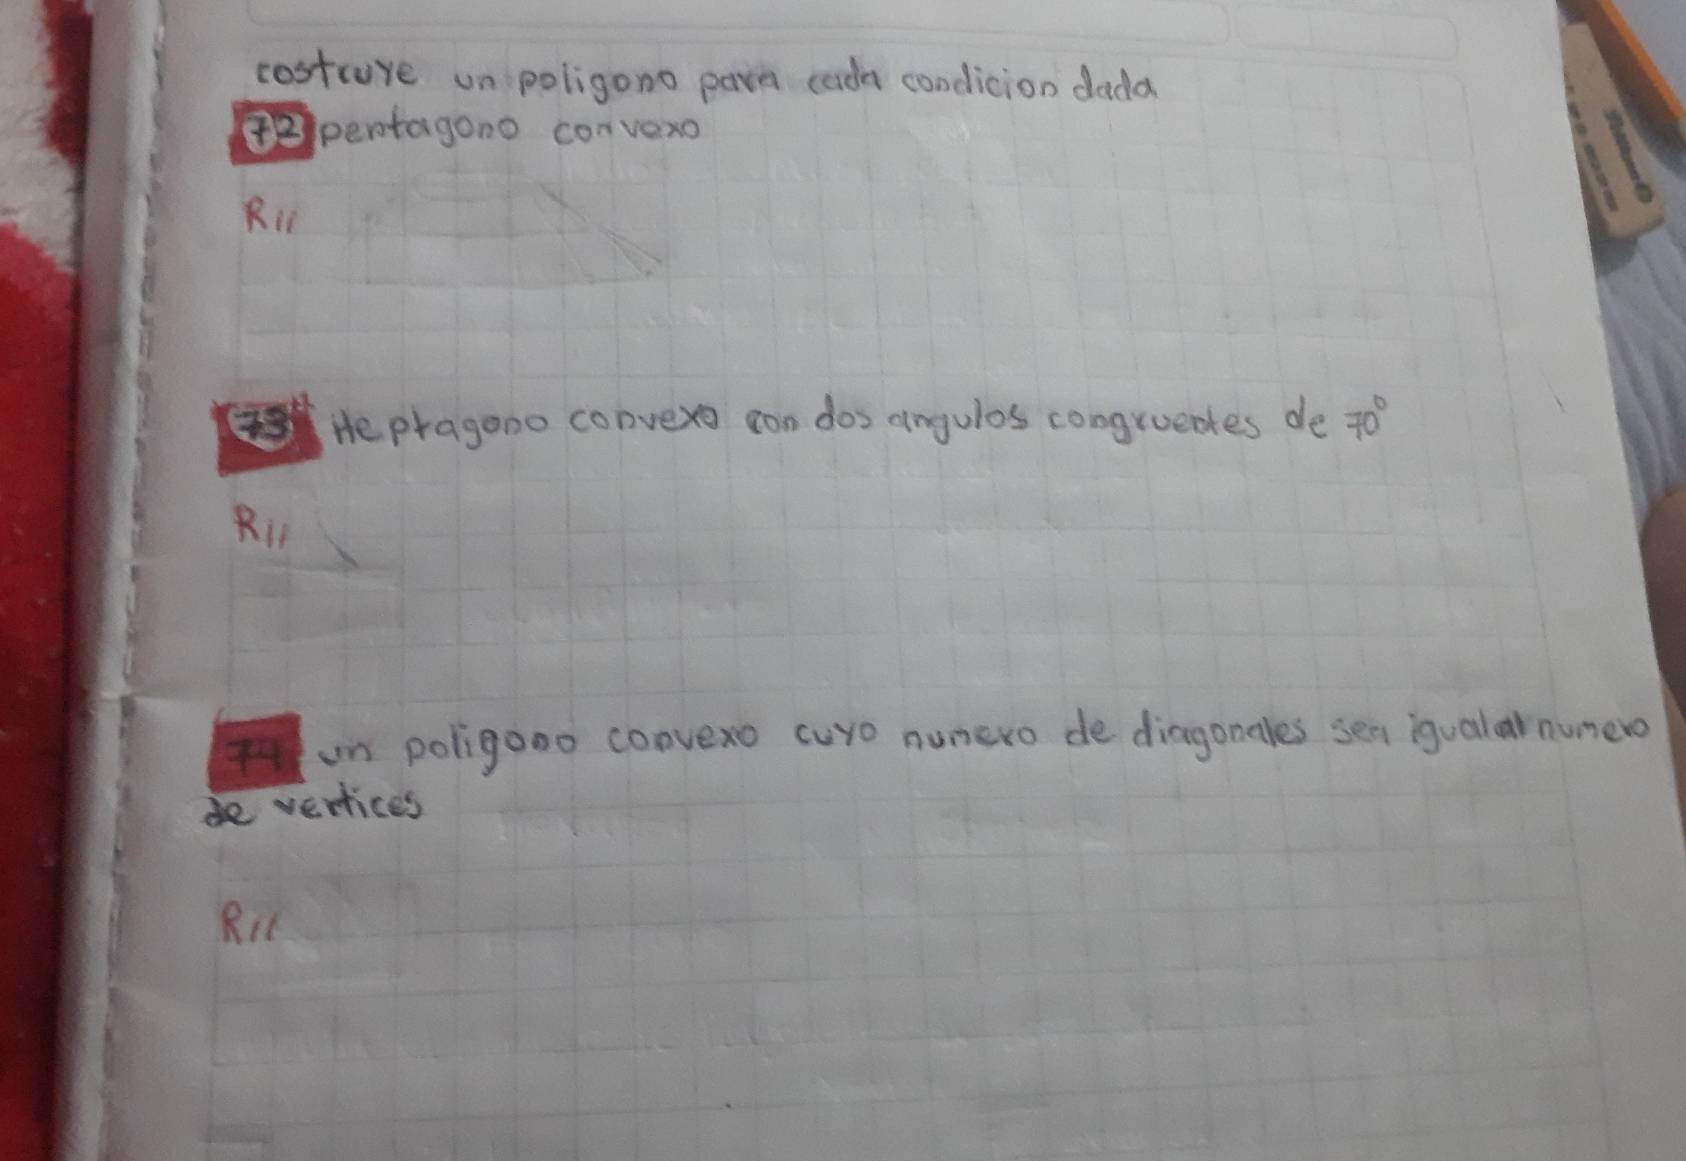 costruye un poligono para cada condicion dada
72 pentagono convexo
R//
73 Heptagono convexo con dos angulos congruentes de 70°
R//
74 un poligono convexo cuyo numero de diagonales sea igual al numero
de vertices
R//